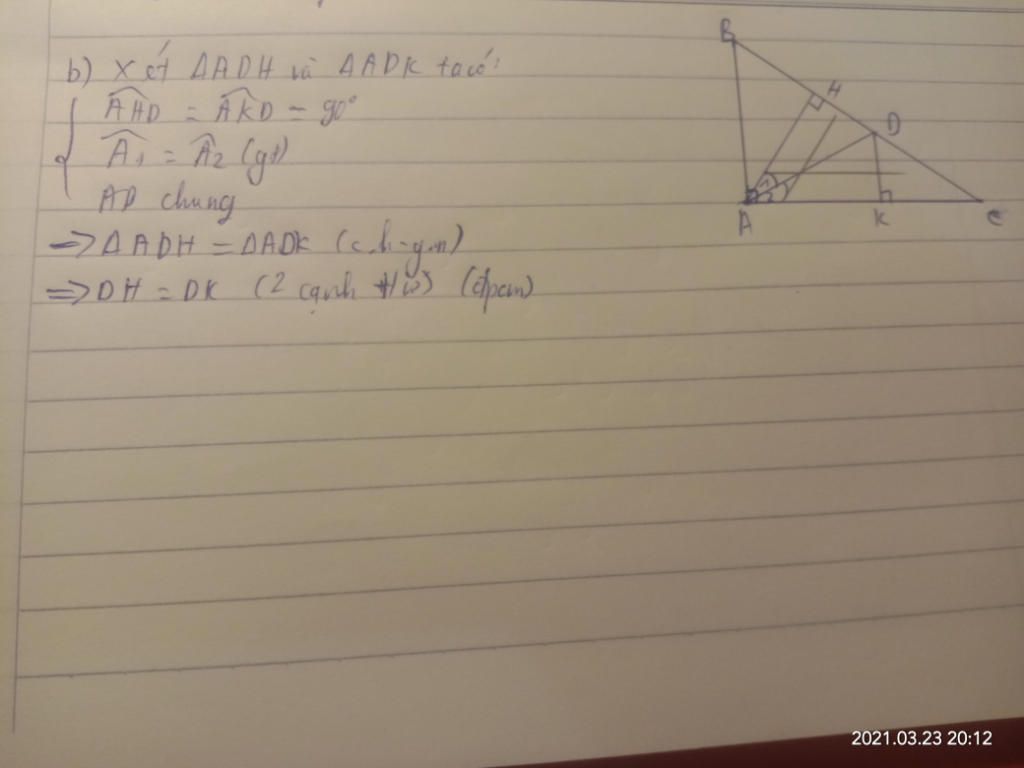 b) Xét ΔADH và ΔADK ta có:
AHD = AKD = 90°
A1 = A2 (gt)
AD chung
=> ΔADH = ΔADK (c.h-g.n)
=> DH = DK (2 cạnh t/ứ) (đpcm)
B
H
D
1
2
A
K
C
2021.03.23 20:12